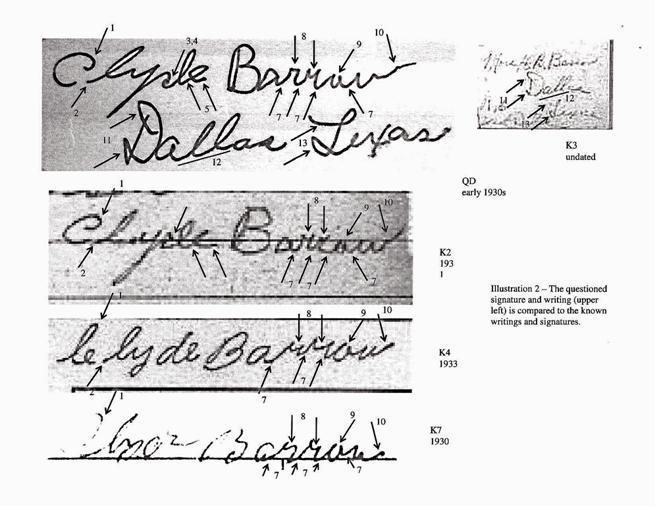 1 3,4 8 9 10
Clyde Barrow
2 5 7 7 7
Dallas Texas
11 12 13
Dallas
11 12
Texas
13
K3
undated
QD
early 1930s
1 8 9 10
Clyde Barrow
2 7 7
K2
193
1
Illustration 2 – The questioned
signature and writing (upper
left) is compared to the known
writings and signatures.
1 8 9 10
Clyde Barrow
2 7 7
K4
1933
1 8 9 10
Barrow
7 7 7
K7
1930